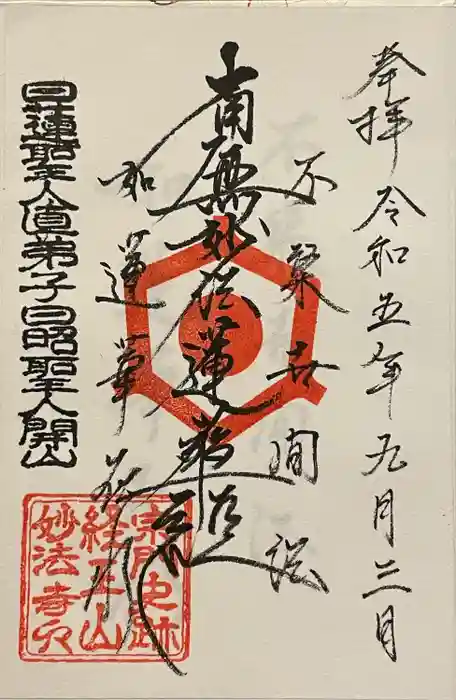 奉拝 令和五年九月三日
不染世間法
南無妙法蓮華経
如蓮華
日蓮聖人直弟子日昭聖人開山
宗門史跡
経王山
妙法寺印